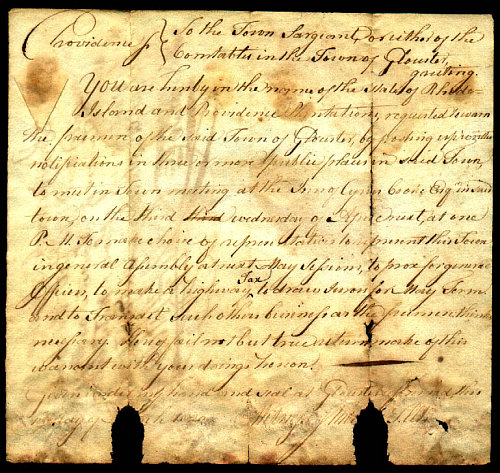 Providence Sc. } To the Town Sargeant, or either of the
Constables in the Town of Glouster,
greeting.
You are hereby in the name of the State of Rhode-
Island and Providence Plantations, requested to warn
the freemen of the said Town of Glouster, by posting up written
notifications in three or more publick places in said Town,
to meet in Town meeting at the of Cyrus Cooke Esq. in said
town, on the third third wednesday of April next, at one
P. M. To make choice of representatives to represent this Town
in general Assembly at next May Session, to prox for general
officers, to make a highway Tax, to draw Jurors for May Term
and to Transact such other business as the freemen think
necessary. Hereof fail not but true return make of this
warrant with your doings hereon.
Given under my hand and seal at Glouster this
day of